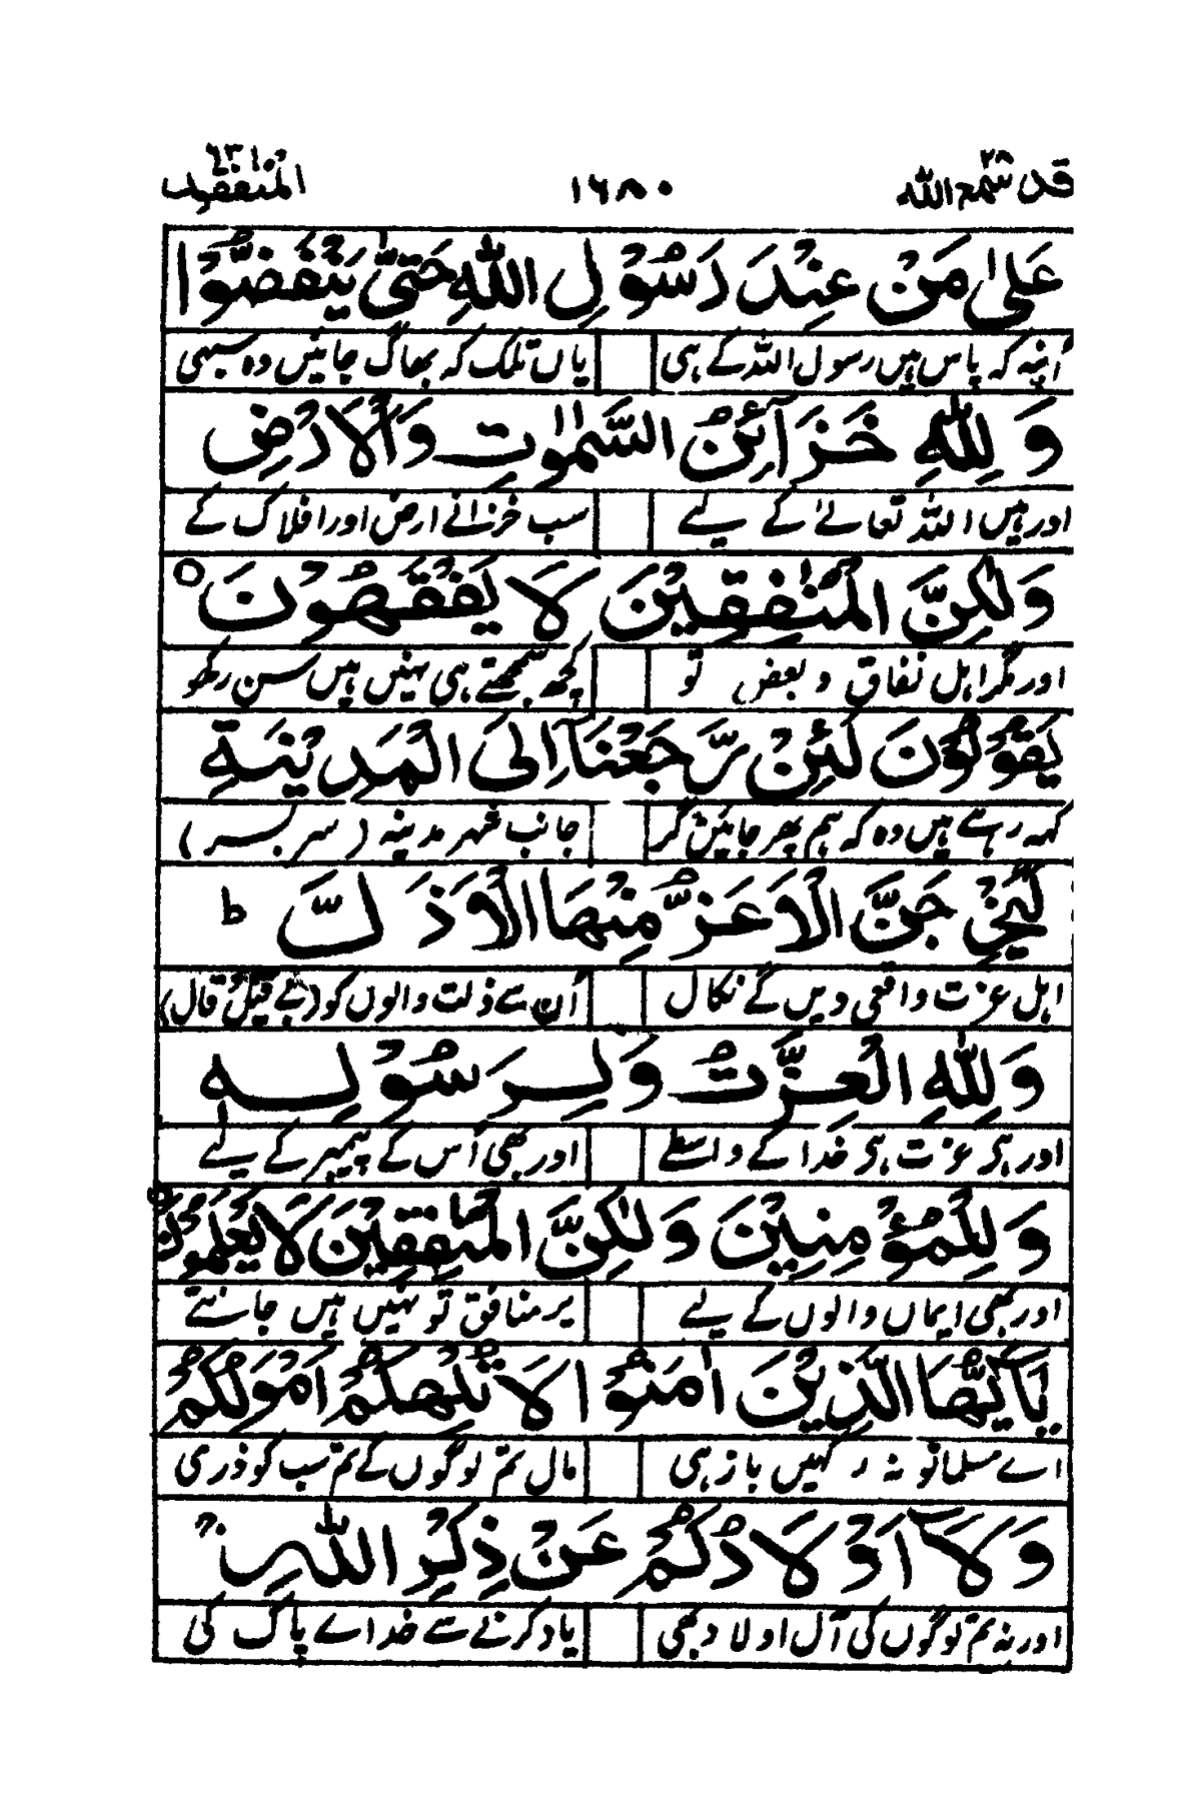 قد سمع الله ٢٨
١٦٨٠
المنفقون ٦٣
عَلٰى مَنْ عِنْدَ رَسُوْلِ اللّٰهِ حَتّٰى يَنْفَضُّوْا
پاس ہیں رسول اللہ کے ہی یاں تلک کہ بھاگ جائیں وہ سبھی
وَلِلّٰهِ خَزَآئِنُ السَّمٰوٰتِ وَالْاَرْضِ
اور ہیں اللہ تعالےٰ کے لیے سب خزانے ارض اور افلاک کے
وَلٰكِنَّ الْمُنٰفِقِيْنَ لَا يَفْقَهُوْنَ ○
اور مگر اہل نفاق و بعض تو کچھ سمجھتے ہی نہیں ہیں سن رکھو
يَقُوْلُوْنَ لَئِنْ رَّجَعْنَآ اِلَى الْمَدِيْنَةِ
کہہ رہے ہیں وہ کہ ہم پھر جائیں گر جانب شہر مدینہ (سربسر)
لَيُخْرِجَنَّ الْاَعَزُّ مِنْهَا الْاَذَلَّ ط
اہل عزت واقعی دیں گے نکال اُن سے ذلت والوں کو (بے قیل و قال)
وَلِلّٰهِ الْعِزَّةُ وَلِرَسُوْلِهٖ
اور ہے عزت ہے خدا کے واسطے اور بھی اُس کے پیمبر کے لیے
وَلِلْمُؤْمِنِيْنَ وَلٰكِنَّ الْمُنٰفِقِيْنَ لَا يَعْلَمُوْنَ ○
اور بھی ایماں والوں کے لیے پر منافق تو نہیں ہیں جانتے
يٰٓاَيُّهَا الَّذِيْنَ اٰمَنُوْا لَا تُلْهِكُمْ اَمْوَالُكُمْ
اے مسلمانو نہ کہیں باز ہی مال تم لوگوں کے تم سب کو ذری
وَلَآ اَوْلَادُكُمْ عَنْ ذِكْرِ اللّٰهِ
اور نہ تم لوگوں کی آل اولاد بھی یاد کرنے سے خدائے پاک کی